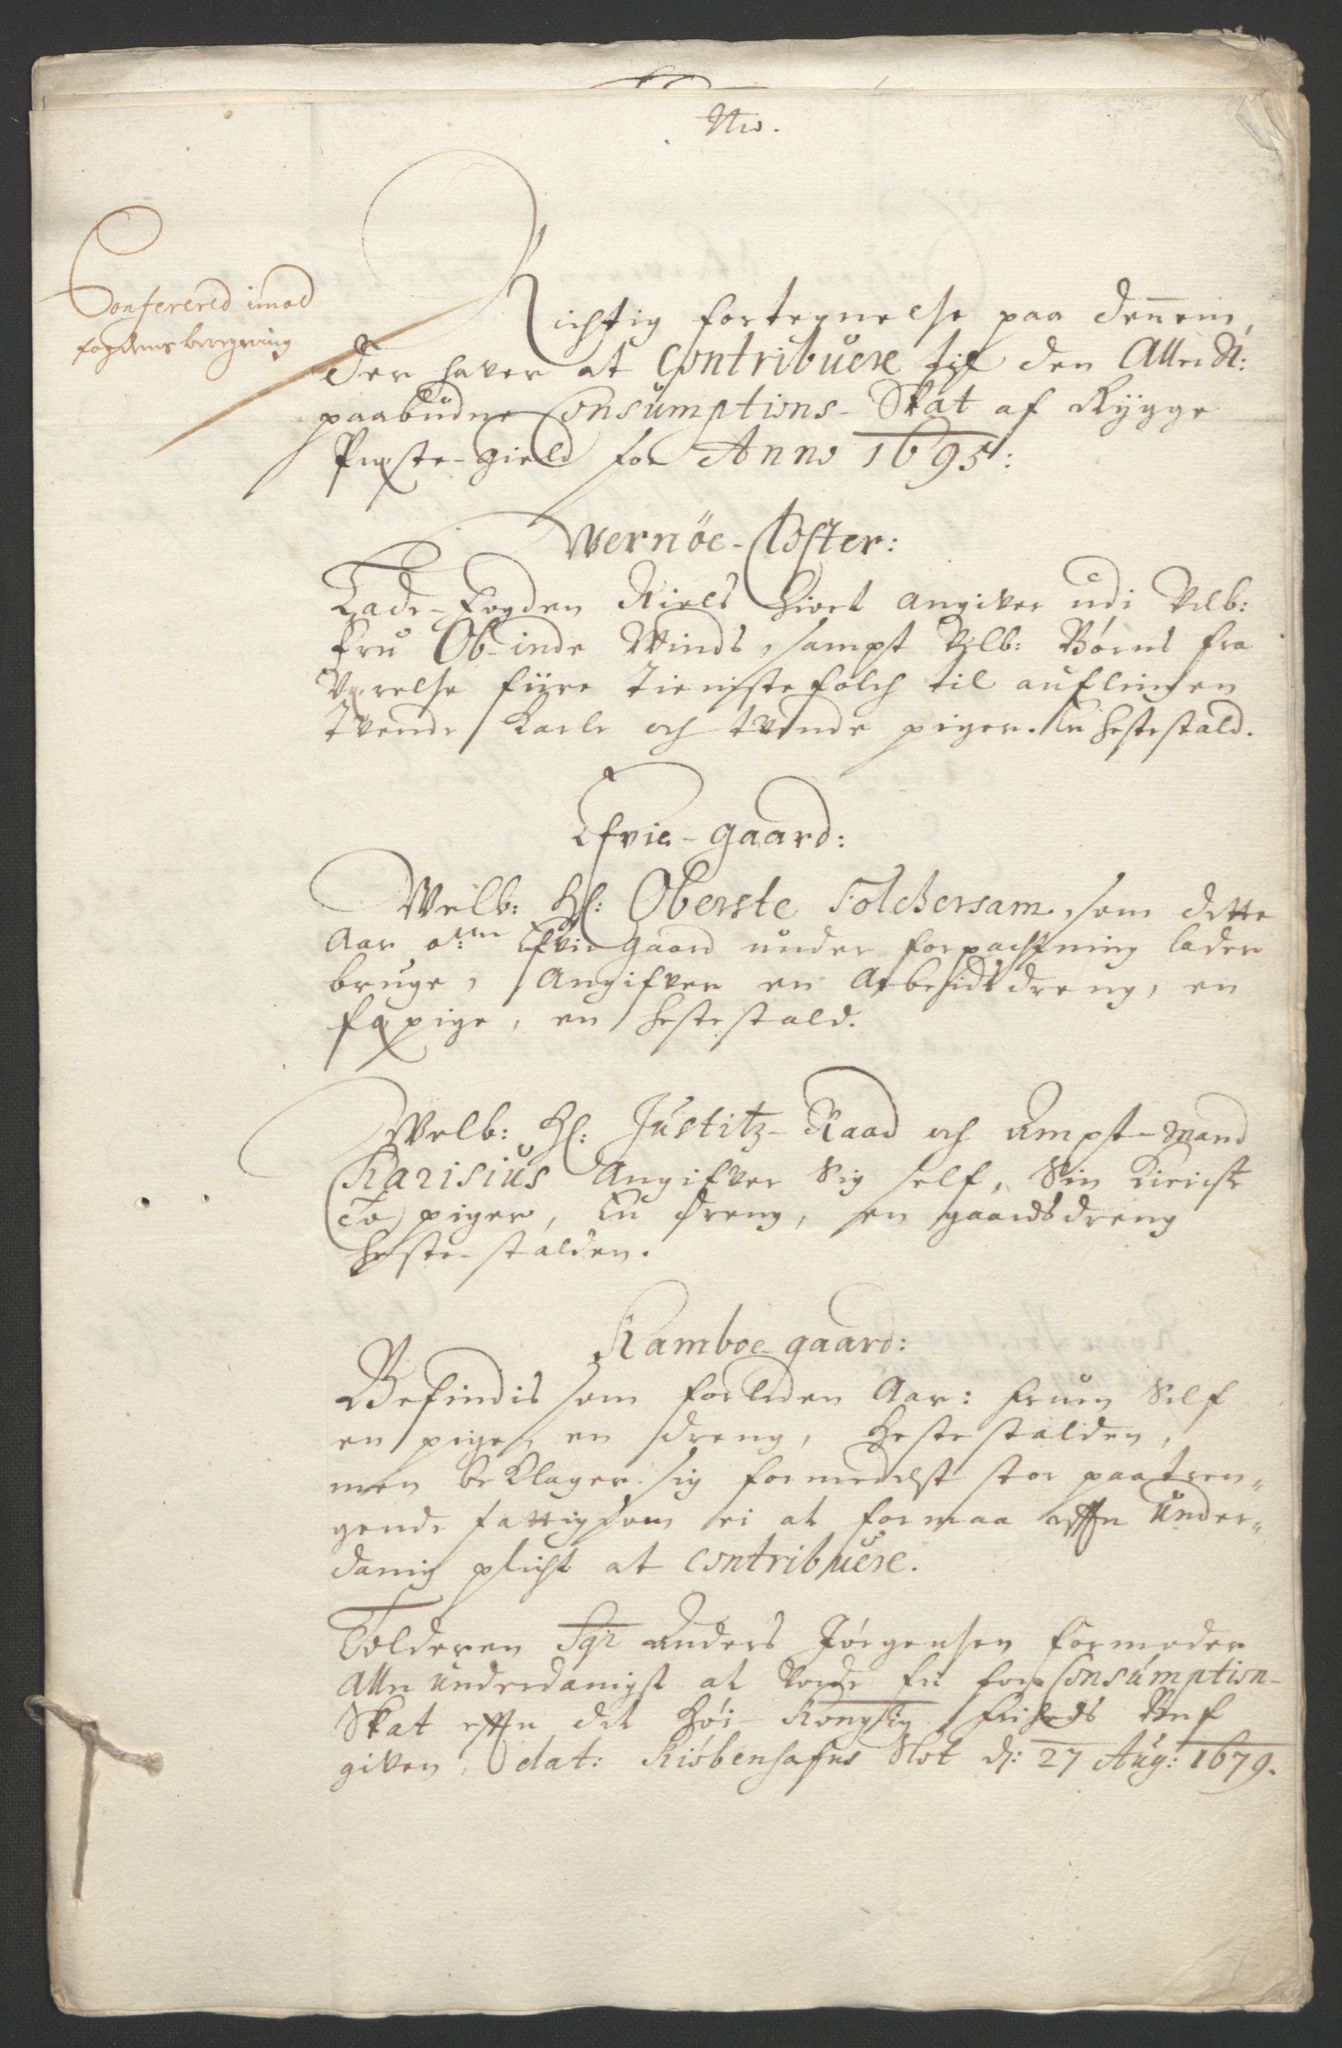 No.
Conferered imod
fogdens beregning
Richtig fortegnelse paa dennem,
der haver at Contribuere til den Allern:
paabudne Consumptions-Skat af Rygge
Præste-gield for Anno 1695:
Wernøe-Closter:
Lade-Fogden Niels Hiort angiver udi Velb:
Fru Ob inde Winds, sampt Velb: Børns fra
værelse fiire tienistefolch til auflingen
tvende karle och tvende piger. En hestestald.
Efvie-gaard:
Welb: Hl: Oberste Folchersam, som dette
Aar Efvie gaard under forpachtning lader
bruge, Angifver en Arbeidsdreng, en
fæpige, en hestestald.
Welb: Hl: Justitz-Raad och Ampt-mand
Karisius Angifver Sig self, Sin Kieriste
(To) piger, En dreng, en gaardsdreng
heste-stalden.
Kamboe gaard:
Befindis som forleden Aar: fruen Self
en pige, en dreng, hestestalden,
men beklager sig formedelst stor paatren„
gende fattigdom ei at formaa effter under„
danig plicht at Contribuere.
Tolderen Sgr Anders Jørgensen formoder
Aller underdanigst at vorde fri for Consumption-
Skat effter det høi- Kongelig friheds Bref
given, dat: Kiøbenhafns Slot d: 27 Aug: 1679.